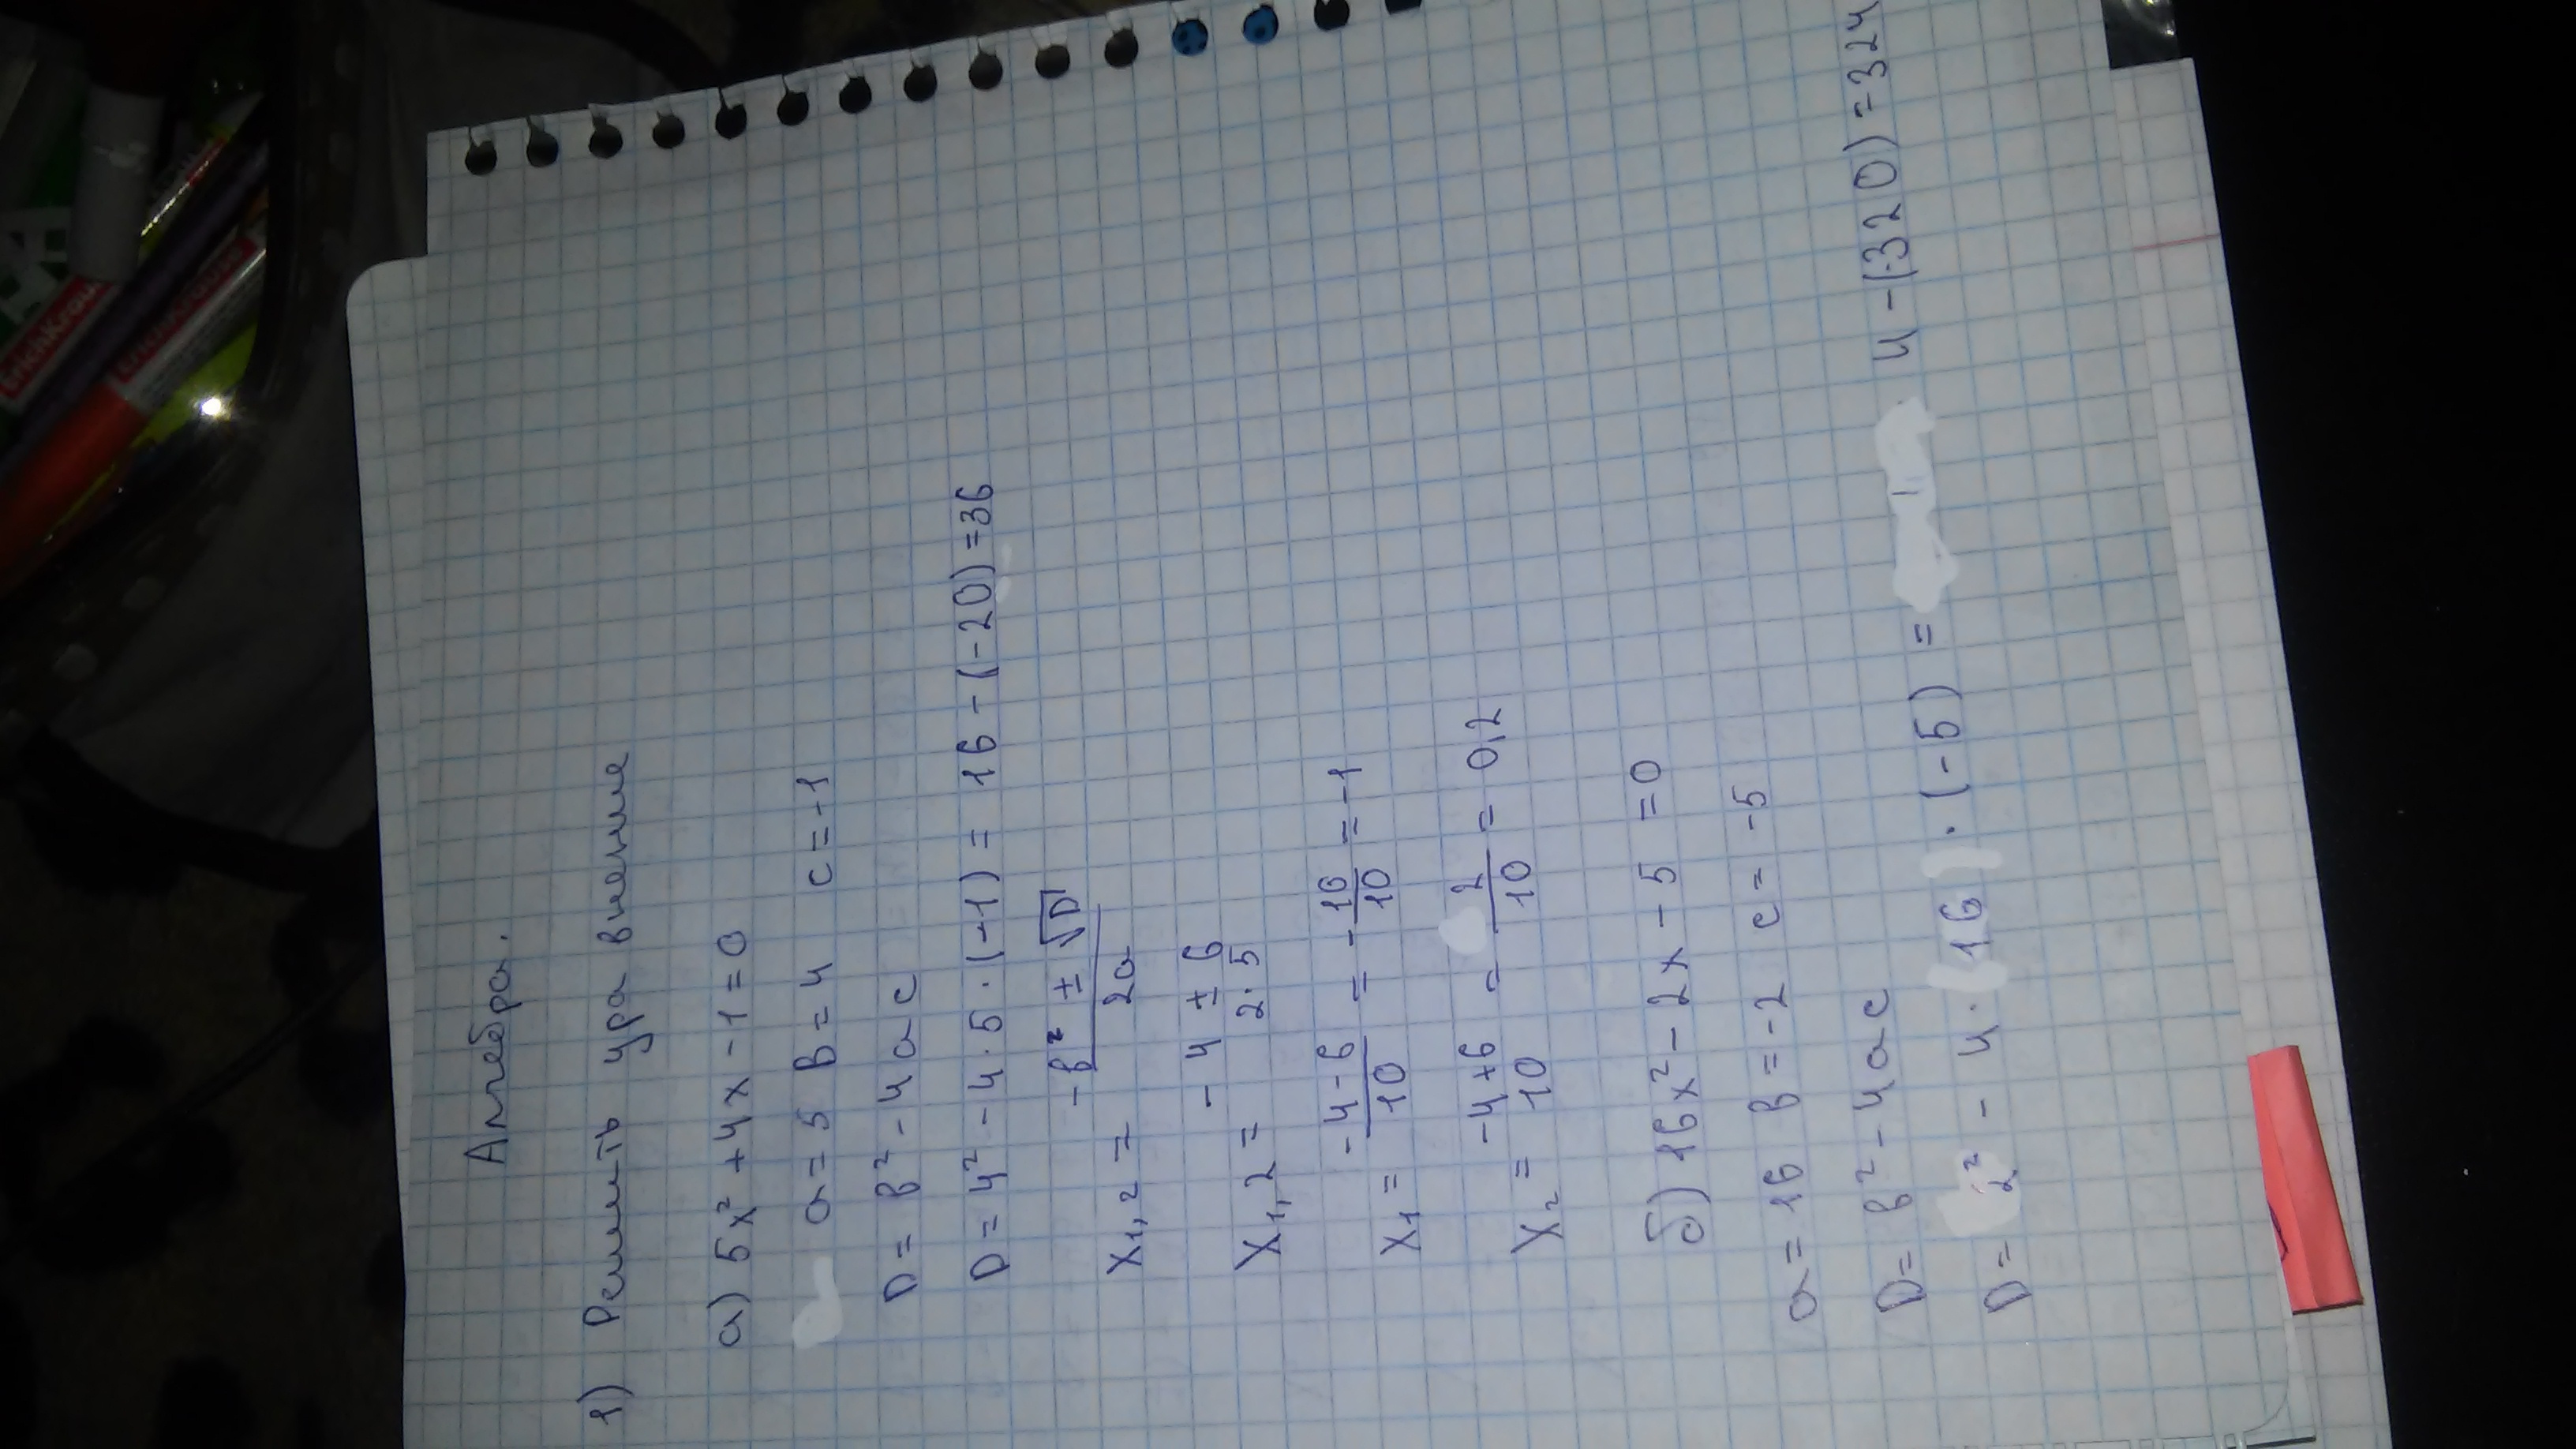 Алгебра.
1) Решить уравнение
а) 5x² + 4x - 1 = 0
a = 5 b = 4 c = -1
D = b² - 4ac
D = 4² - 4 · 5 · (-1) = 16 - (-20) = 36
X₁,₂ = -b² ± √D / 2a
X₁,₂ = -4 ± 6 / 2·5
X₁ = -4-6 / 10 = -10/10 = -1
X₂ = -4+6 / 10 = 2/10 = 0,2
б) 16x² - 2x - 5 = 0
a = 16 b = -2 c = -5
D = b² - 4ac
D = 2² - 4 · 16 · (-5) = 4 - (-320) = 324
ErichKrause